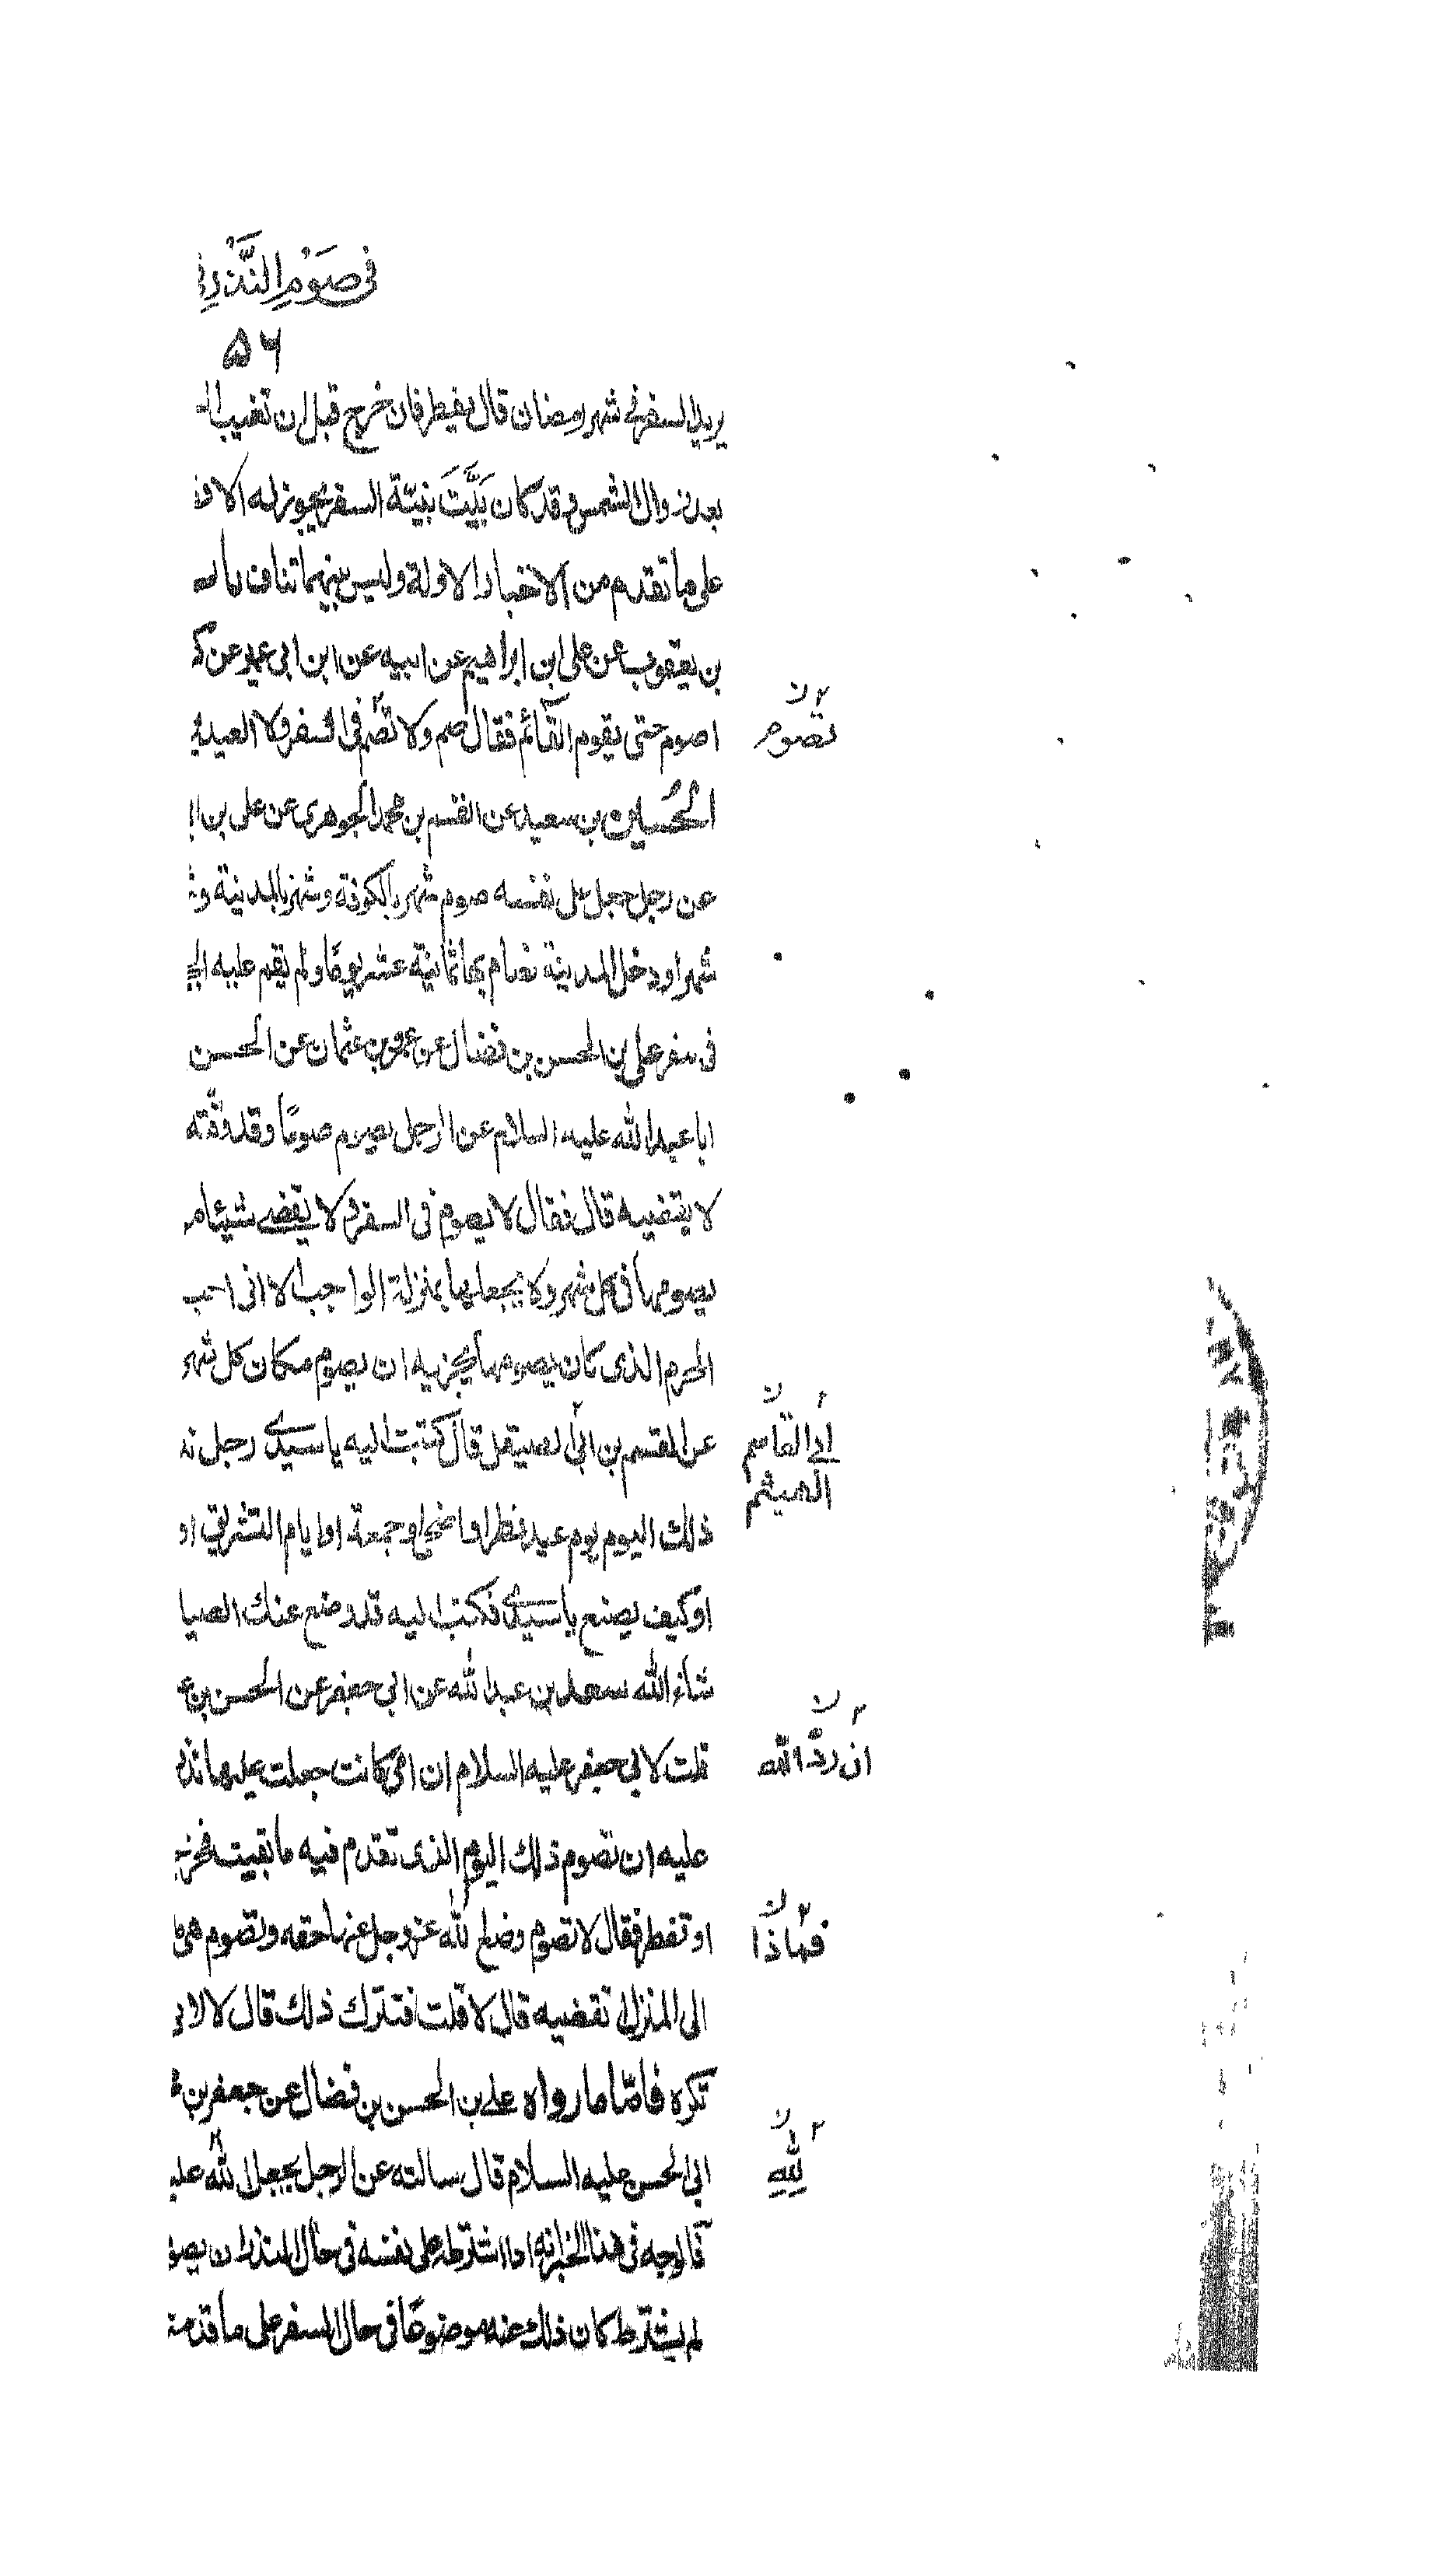 في صَوْمِ النَّذْرِ
۵۶
يريد السفر في شهر رمضان قال يفطر فان خرج قبل ان تغيب
بعد زوال الشمس و قد كان بَيَّتَ بنيّة السفر يجوز له الا
على ما تقدم من الاخبار الاولة وليس بينهما تناف
بن يعقوب عن على ابن ابراهيم عن ابيه عن ابن ابى عمير عن
اصوم حتى يقوم القائم فقال صم ولا تصم فى السفر ولا العيد
تصوم
الحُسين بن سعيد عن القسم بن محمد الجوهرى عن على بن
عن رجل جعل على نفسه صوم شهر بالكوفة وشهر بالمدينة و
شهرا ودخل المدينة فصام بها ثمانية عشر يومًا ولم يقم عليه
فى سفر على بن الحسن بن فضال عن عمرو بن عثمان عن الحسن
ابا عبد الله عليه السلام عن الرجل يصوم صومًا وقد وقّته
لا يقضيه قال فقال لا يصوم فى السفر و لا يقضى شيئا
يصومها فى كل شهر ولا يجعلها بمنزلة الواجب الا انى احب
المحرم الذى كان يصومها يجزيه ان يصوم مكان كل شهر
عن القسم بن ابى الصيقل قال كتبت اليه يا سيدى رجل
أبي القاسم
الهيثم
ذلك اليوم يوم عيد فطر او اضحى او جمعة او ايام التشريق او
او كيف يصنع يا سيدى فكتب اليه قد وضع عنك
شاء الله سعد بن عبد الله عن ابى جعفر عن الحسن بن
قلت لابى جعفر عليه السلام ان امى كانت جعلت عليها
ان ردّ الله
عليه ان تصوم ذلك اليوم الذى تقدم فيه ما بقيت
او تفطر فقال لا تصوم وضع لله عز وجل عنها حقه وتصوم هى
فماذا
الى المنزل تقضيه قال لا قلت فتترك ذلك قال لا
تكره فامّا ما رواه على بن الحسن بن فضال عن جعفر بن
ابى الحسن عليه السلام قال سالته عن الرجل يجعل لله
للهِ
فالوجه فى هذا الخبر انه اذا اشترط على نفسه فى حال النذر ان
لم يشترط كان ذلك عنه موضوعًا فى حال السفر على ما